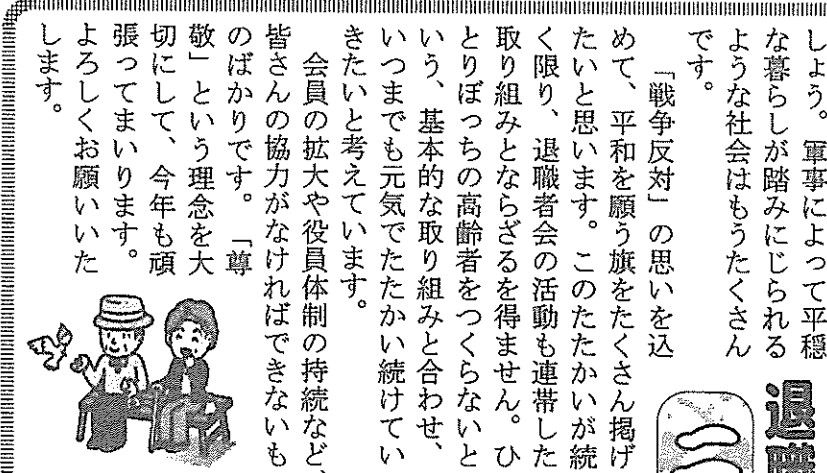 しょう。軍事によって平穏
な暮らしが踏みにじられる
ような社会はもうたくさん
です。
「戦争反対」の思いを込
めて、平和を願う旗をたくさん掲げ
たいと思います。このたたかいが続
く限り、退職者会の活動も連帯した
取り組みとならざるを得ません。ひ
とりぼっちの高齢者をつくらないと
いう、基本的な取り組みと合わせ、
いつまでも元気でたたかい続けてい
きたいと考えています。
会員の拡大や役員体制の持続など、
皆さんの協力がなければできないも
のばかりです。「尊
敬」という理念を大
切にして、今年も頑
張ってまいります。
よろしくお願いいた
します。
退職